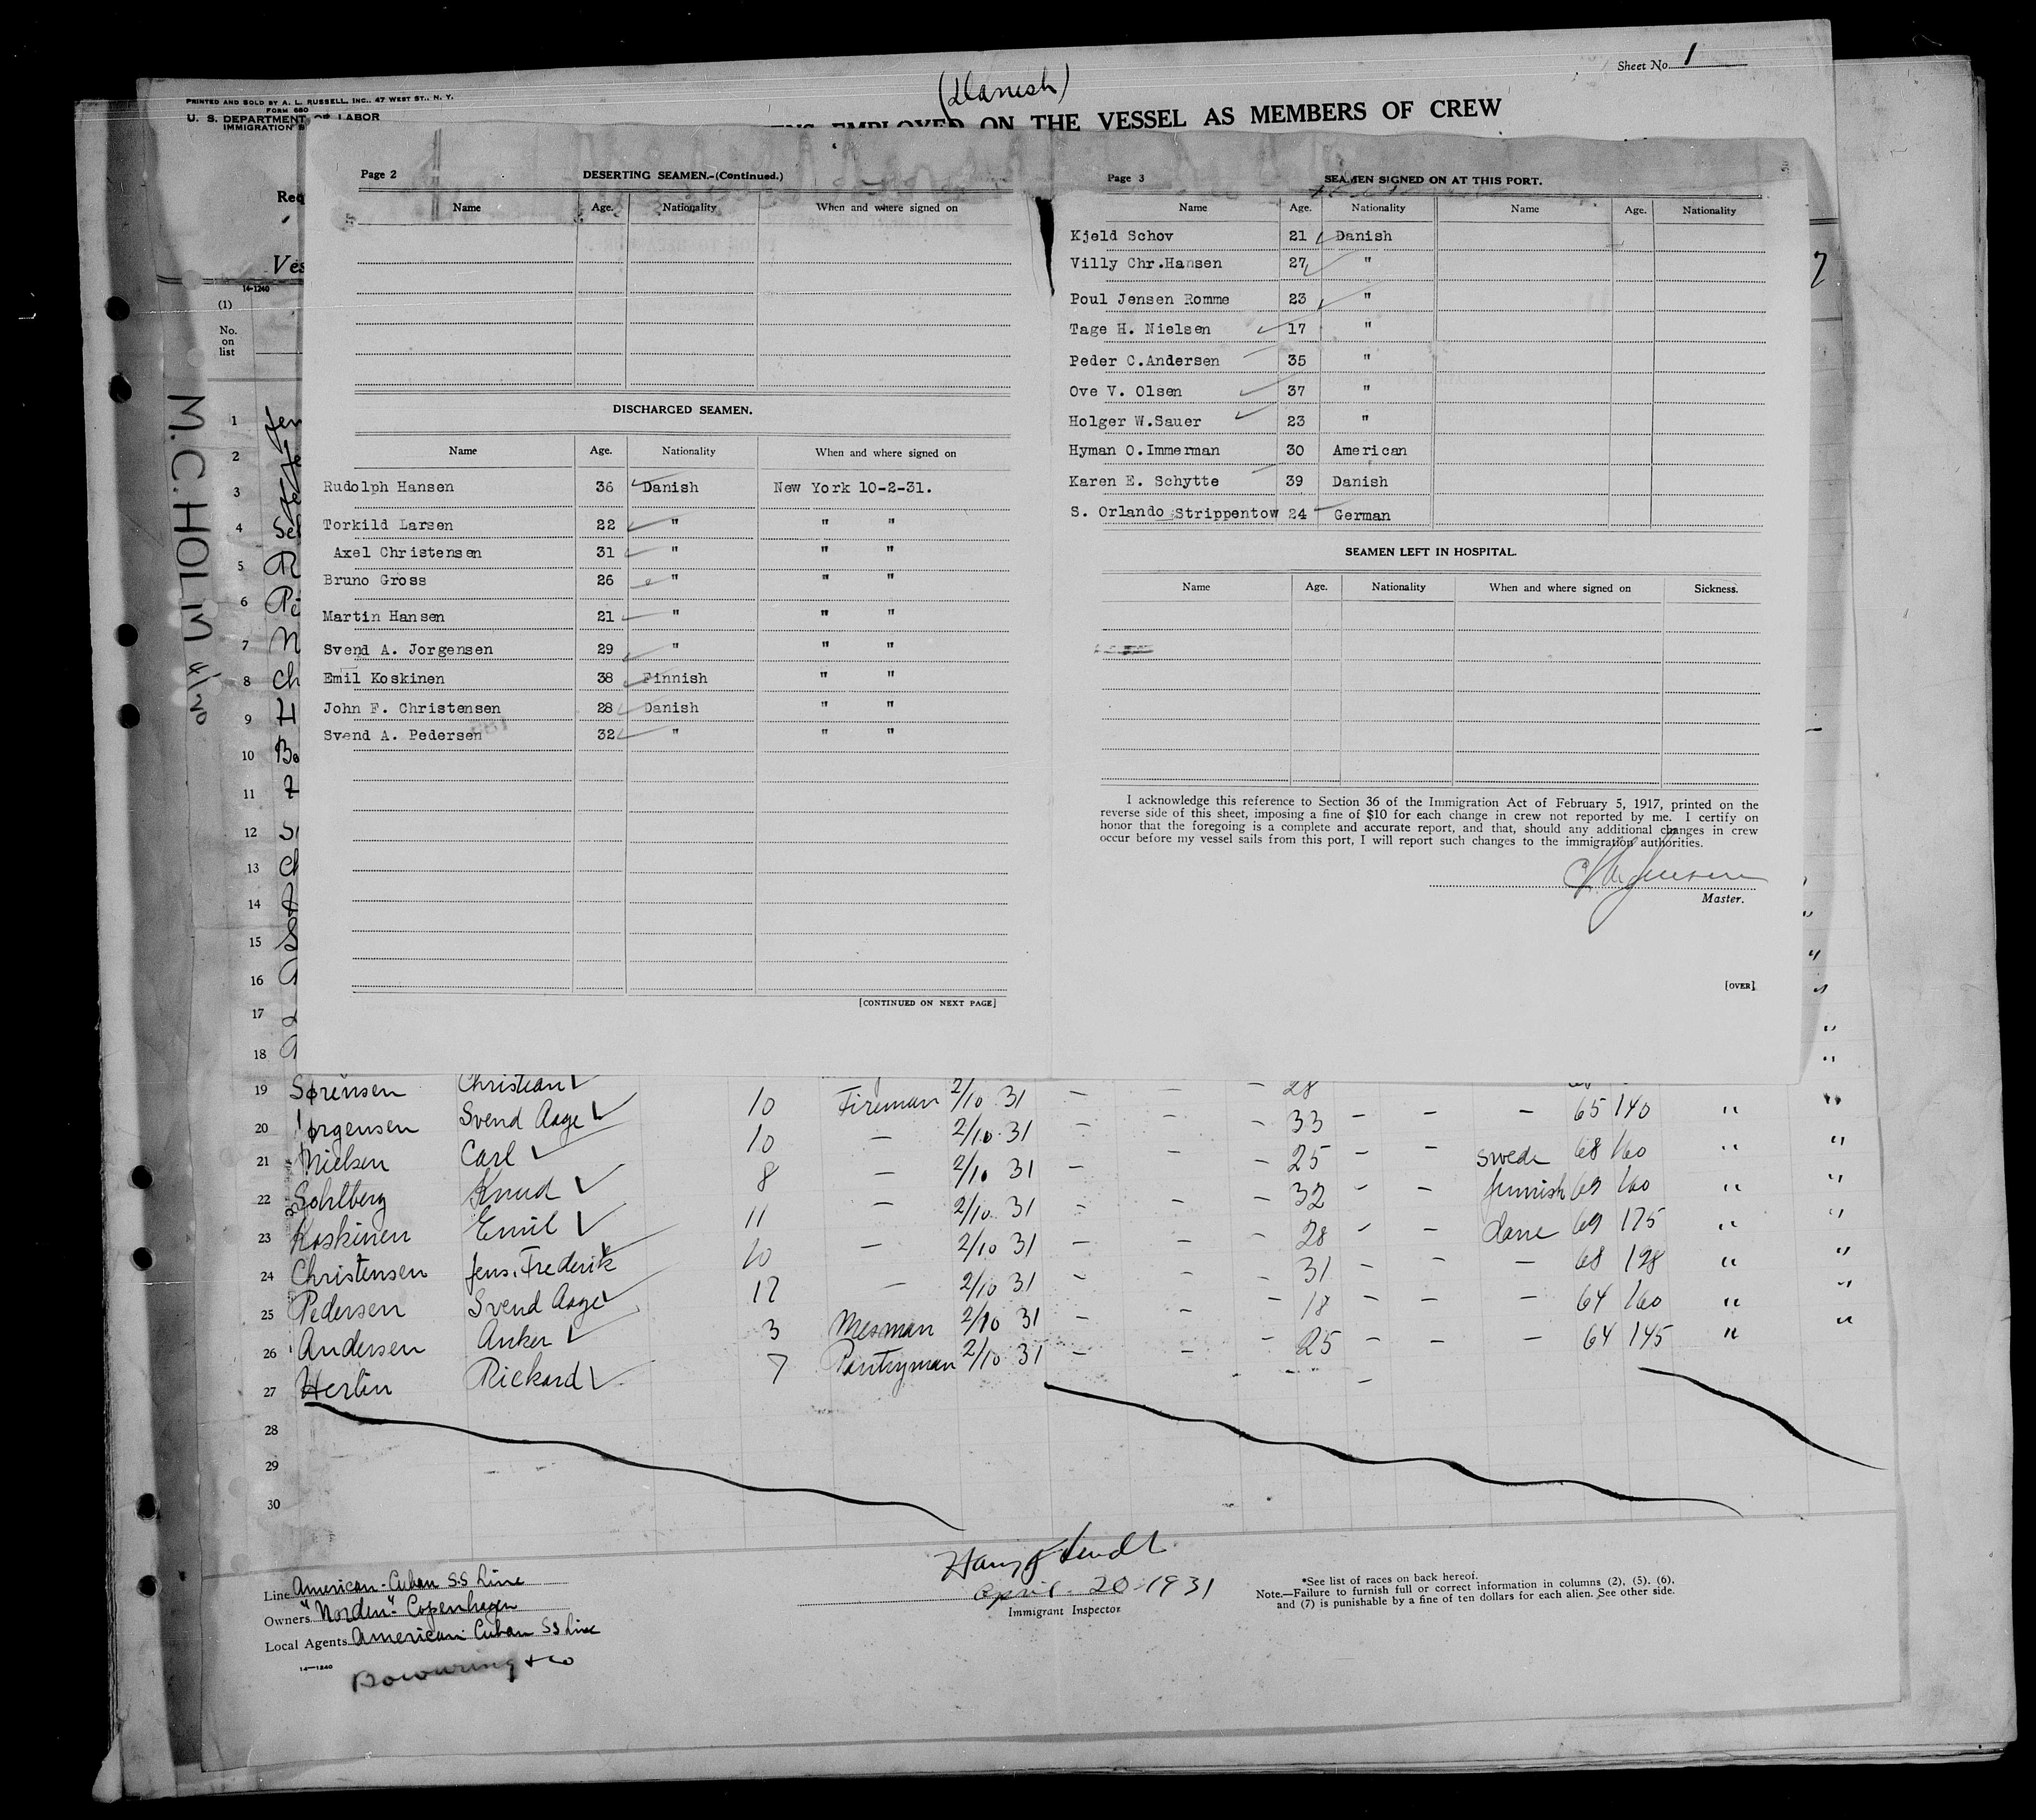 (Danish)
Sheet No. 1
PRINTED AND SOLD BY A. L. RUSSELL, INC., 47 WEST ST., N. Y.
FORM 680
U. S. DEPARTMENT OF LABOR
IMMIGRATION S
EMPLOYED ON THE VESSEL AS MEMBERS OF CREW
Req
Ves
14-1240
(1)
No. on list
M.C. HOLM
Page 2
DESERTING SEAMEN.-(Continued.)
Name Age. Nationality When and where signed on
DISCHARGED SEAMEN.
Name Age. Nationality When and where signed on
Rudolph Hansen 36 Danish New York 10-2-31.
Torkild Larsen 22 " " "
Axel Christensen 31 " " "
Bruno Gross 26 " " "
Martin Hansen 21 " " "
Svend A. Jorgensen 29 " " "
Emil Koskinen 38 Finnish " "
John F. Christensen 28 Danish " "
Svend A. Pedersen 32 " " "
[CONTINUED ON NEXT PAGE]
Page 3
SEAMEN SIGNED ON AT THIS PORT.
Name Age. Nationality Name Age. Nationality
Kjeld Schov 21 Danish
Villy Chr.Hansen 27 "
Poul Jensen Romme 23 "
Tage H. Nielsen 17 "
Peder C.Andersen 35 "
Ove V. Olsen 37 "
Holger W.Sauer 23 "
Hyman O.Immerman 30 American
Karen E. Schytte 39 Danish
S. Orlando Strippentow 24 German
SEAMEN LEFT IN HOSPITAL.
Name Age. Nationality When and where signed on Sickness.
I acknowledge this reference to Section 36 of the Immigration Act of February 5, 1917, printed on the
reverse side of this sheet, imposing a fine of $10 for each change in crew not reported by me. I certify on
honor that the foregoing is a complete and accurate report, and that, should any additional changes in crew
occur before my vessel sails from this port, I will report such changes to the immigration authorities.
Master.
[OVER]
1
2
3
4
5
6
7
8
9
10
11
12
13
14
15
16
17
18
19 Sørensen Christian 10 Fireman 2/10 31 - - - 28
20 Jørgensen Svend Aage 10 - 2/10 31 - - - 33 - - - 65 140 " "
21 Nielsen Carl 8 - 2/10 31 - - - 25 - - Swede 68 160 " "
22 Sohlberg Knud 11 - 2/10 31 - - - 32 - - finnish 69 160 " "
23 Koskinen Emil 10 - 2/10 31 - - - 28 - - dane 69 175 " "
24 Christensen Jens. Frederik 12 - 2/10 31 - - - 31 - - - 68 128 " "
25 Pedersen Svend Aage 3 Mesman 2/10 31 - - - 18 - - - 64 160 " "
26 Andersen Anker 7 Pantryman 2/10 31 - - - 25 - - - 64 145 " "
27 Herlin Rickard
28
29
30
Line American-Cuban S.S Line
Owners "Norden" Copenhagen
Local Agents American Cuban SS Line
14-1240
Bowring & Co
April 20-1931
Immigrant Inspector
*See list of races on back hereof.
Note.—Failure to furnish full or correct information in columns (2), (5), (6),
and (7) is punishable by a fine of ten dollars for each alien. See other side.